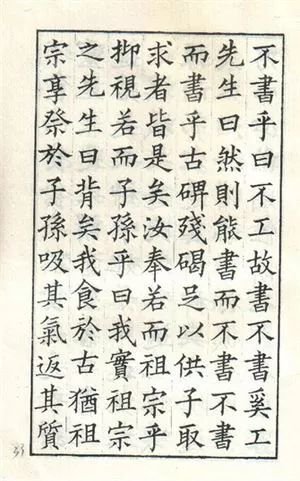 不書乎曰不工故書不書奚工
先生曰然則能書而不書不書
而書乎古碑殘碣足以供子取
求者皆是矣汝奉若而祖宗乎
抑視若而子孫乎曰我實祖宗
之先生曰背矣我食於古猶祖
宗享祭於子孫吸其氣返其質
33